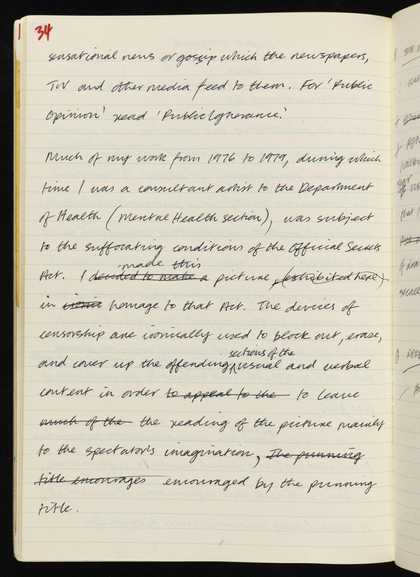 34
sensational news or gossip which the newspapers,
TV and other media feed to them. For 'Public
Opinion' read 'Public Ignorance'.
Much of my work from 1976 to 1979, during which
time I was a consultant artist to the Department
of Health (Mental Health section), was subject
to the suffocating conditions of the Official Secrets
made this
Act. I decided to make a picture, (exhibited here)
in ironic homage to that Act. The devices of
censorship are ironically used to block out, erase,
sections of the
and cover up the offending visual and verbal
content in order to appeal to the to leave
much of the the reading of the picture mainly
to the spectator's imagination, The punning
title encourages encouraged by the punning
title.